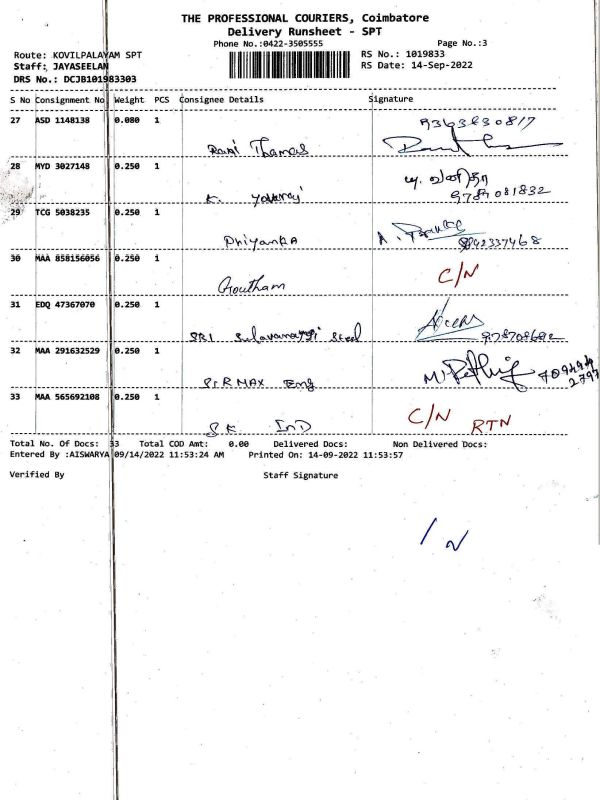 THE PROFESSIONAL COURIERS, Coimbatore
Delivery Runsheet - SPT
Phone No.:0422-3505555 Page No.:3
Route: KOVILPALAYAM SPT RS No.: 1019833
Staff: JAYASEELAN RS Date: 14-Sep-2022
DRS No.: DCJB101983303
S No Consignment No Weight PCS Consignee Details Signature
27 ASD 1148138 0.080 1
Ravi Thomas
28 MYD 3027148 0.250 1
K. 9789081832
29 TCG 5038235 0.250 1
Dhiyanka 9842337468
30 MAA 858156056 0.250 1 C/N
Goutham
31 EDQ 47367070 0.250 1
SRI Steel
32 MAA 291632529 0.250 1
MAX Eng
33 MAA 565692108 0.250 1 C/N RTN
S.K. IND
Total No. Of Docs: 33 Total COD Amt: 0.00 Delivered Docs: Non Delivered Docs:
Entered By :AISWARYA 09/14/2022 11:53:24 AM Printed On: 14-09-2022 11:53:57
Verified By Staff Signature